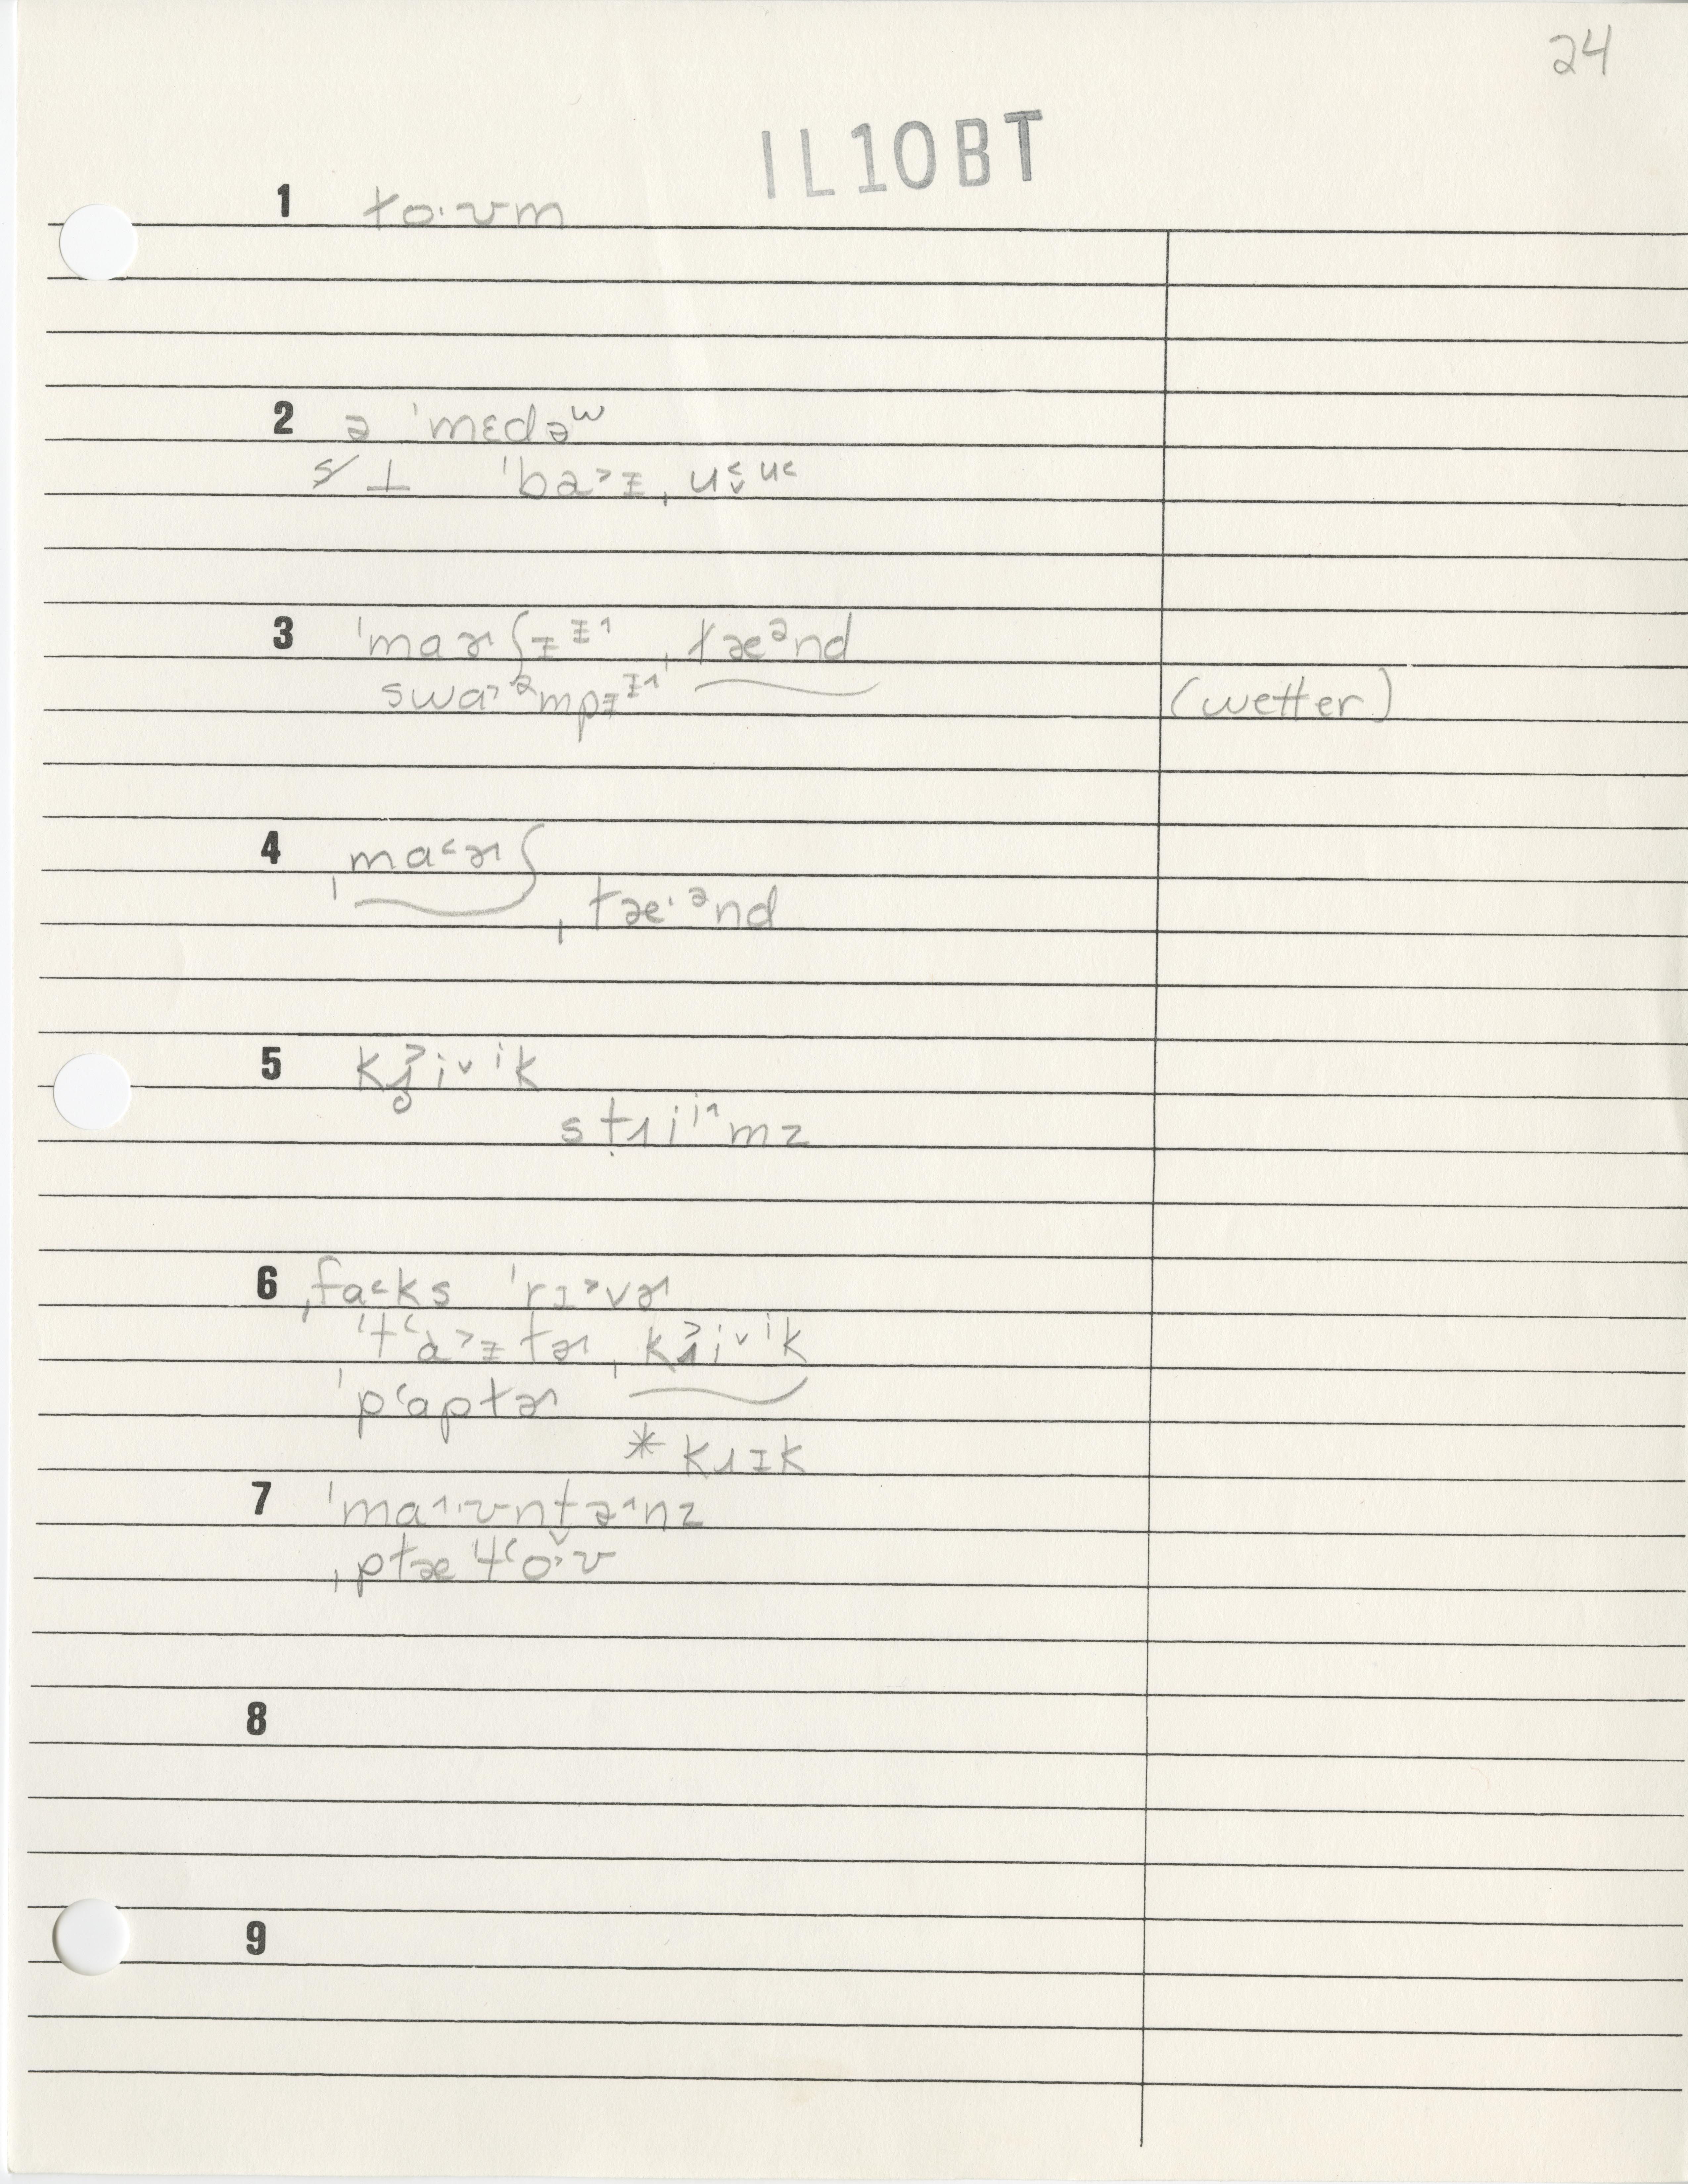 24
IL10BT
1 ɫo·ʊm
2 ə ˈmɛdəʷ
s/⊥ ˈba˃ɪ, u˂ᵥu˂
3 ˈmaɚʃɨᶤ˄ ˌɫæᵊnd
swa˃ᵊmpɨᶤ˄ (wetter)
4 ˌma˂ɚʃ
ˌɫæ·ᵊnd
5 kɹ̥˃iᵛⁱk
sṭɹiⁱ˄mz
6 ˌfa˂ks ˈrɪ˃vɚ
ˈtʻa˃ɨtɚ ˌkɹ˃iᵛⁱk
ˈpʻaptɚ
* kɹɪk
7 ˈma˄·ʊntə˄nz
ˌpɫæˈtʻo·ʊ
8
9